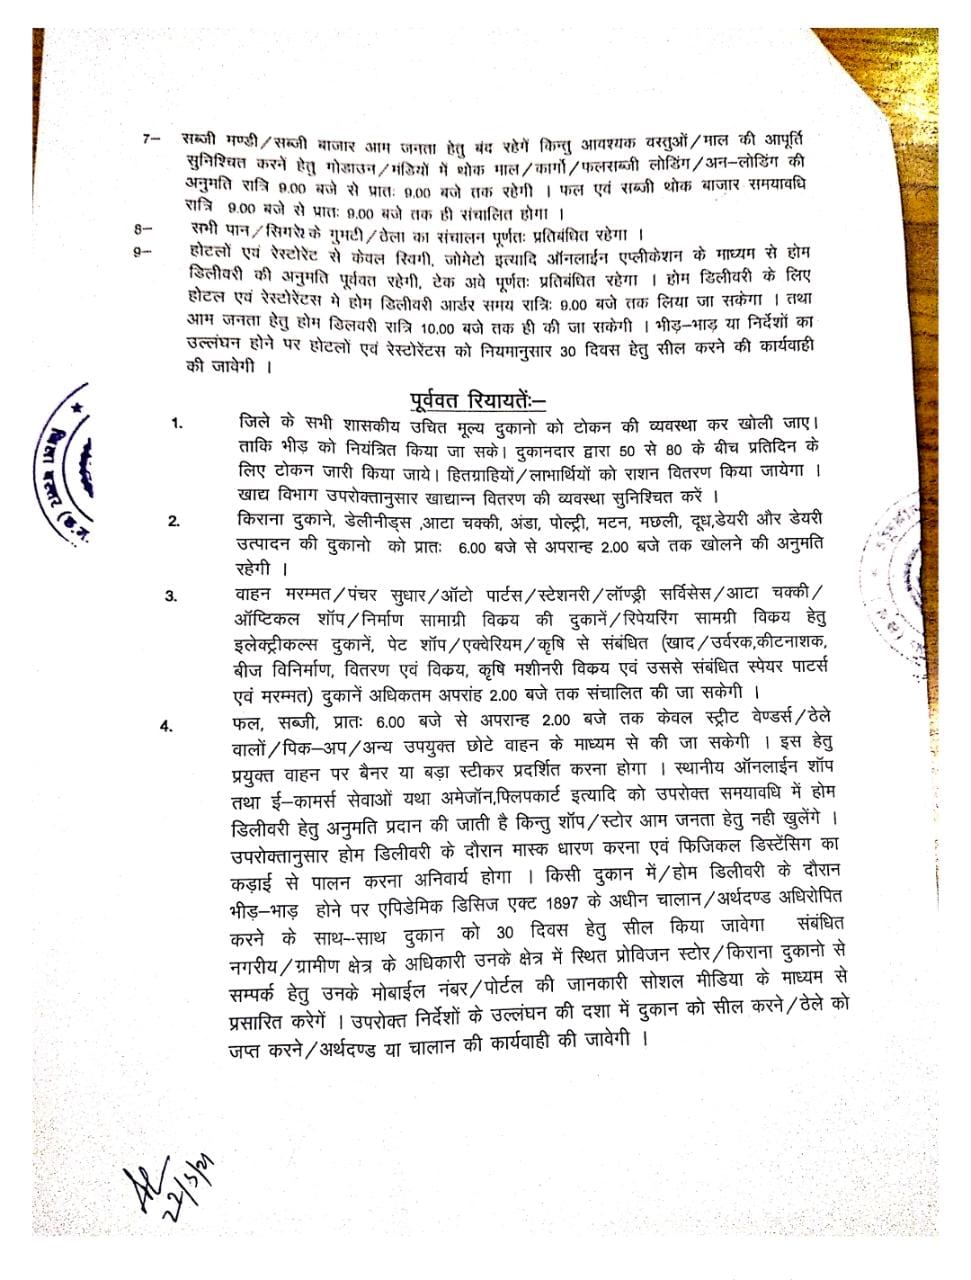 7– सब्जी मण्डी/सब्जी बाजार आम जनता हेतु बंद रहेगें किन्तु आवश्यक वस्तुओं/माल की आपूर्ति
सुनिश्चित करनें हेतु गोडाउन/मंडियों में थोक माल/कार्गो/फलसब्जी लोडिंग/अन–लोडिंग की
अनुमति रात्रि 9.00 बजे से प्रातः 9.00 बजे तक रहेगी । फल एवं सब्जी थोक बाजार समयावधि
रात्रि 9.00 बजे से प्रातः 9.00 बजे तक ही संचालित होगा ।
8– सभी पान/सिगरेट के गुमटी/ठेला का संचालन पूर्णतः प्रतिबंधित रहेगा ।
9– होटलों एवं रेस्टोरेंट से केवल स्विगी, जोमेटो इत्यादि ऑनलाईन एप्लीकेशन के माध्यम से होम
डिलीवरी की अनुमति पूर्ववत रहेगी, टेक अवे पूर्णतः प्रतिबंधित रहेगा । होम डिलीवरी के लिए
होटल एवं रेस्टोरेंटस मे होम डिलीवरी आर्डर समय रात्रिः 9.00 बजे तक लिया जा सकेगा । तथा
आम जनता हेतु होम डिलवरी रात्रि 10.00 बजे तक ही की जा सकेगी । भीड़–भाड़ या निर्देशों का
उल्लंघन होने पर होटलों एवं रेस्टोरेंटस को नियमानुसार 30 दिवस हेतु सील करने की कार्यवाही
की जावेगी ।
पूर्ववत रियायतेंः–
1. जिले के सभी शासकीय उचित मूल्य दुकानो को टोकन की व्यवस्था कर खोली जाए।
ताकि भीड़ को नियंत्रित किया जा सके। दुकानदार द्वारा 50 से 80 के बीच प्रतिदिन के
लिए टोकन जारी किया जाये। हितग्राहियों/लाभार्थियों को राशन वितरण किया जायेगा ।
खाद्य विभाग उपरोक्तानुसार खाद्यान्न वितरण की व्यवस्था सुनिश्चित करें ।
2. किराना दुकाने, डेलीनीड्स ,आटा चक्की, अंडा, पोल्ट्री, मटन, मछली, दूध,डेयरी और डेयरी
उत्पादन की दुकानो को प्रातः 6.00 बजे से अपरान्ह 2.00 बजे तक खोलने की अनुमति
रहेगी ।
3. वाहन मरम्मत/पंचर सुधार/ऑटो पार्टस/स्टेशनरी/लॉण्ड्री सर्विसेस/आटा चक्की/
ऑप्टिकल शॉप/निर्माण सामाग्री विकय की दुकानें/रिपेयरिंग सामग्री विकय हेतु
इलेक्ट्रीकल्स दुकानें, पेट शॉप/एक्वेरियम/कृषि से संबंधित (खाद/उर्वरक,कीटनाशक,
बीज विनिर्माण, वितरण एवं विकय, कृषि मशीनरी विकय एवं उससे संबंधित स्पेयर पाटर्स
एवं मरम्मत) दुकानें अधिकतम अपरांह 2.00 बजे तक संचालित की जा सकेगी ।
4. फल, सब्जी, प्रातः 6.00 बजे से अपरान्ह 2.00 बजे तक केवल स्ट्रीट वेण्डर्स/ठेले
वालों/पिक–अप/अन्य उपयुक्त छोटे वाहन के माध्यम से की जा सकेगी । इस हेतु
प्रयुक्त वाहन पर बैनर या बड़ा स्टीकर प्रदर्शित करना होगा । स्थानीय ऑनलाईन शॉप
तथा ई–कामर्स सेवाओं यथा अमेजॉन,फ्लिपकार्ट इत्यादि को उपरोक्त समयावधि में होम
डिलीवरी हेतु अनुमति प्रदान की जाती है किन्तु शॉप/स्टोर आम जनता हेतु नही खुलेंगे ।
उपरोक्तानुसार होम डिलीवरी के दौरान मास्क धारण करना एवं फिजिकल डिस्टेंसिग का
कड़ाई से पालन करना अनिवार्य होगा । किसी दुकान में/होम डिलीवरी के दौरान
भीड़–भाड़ होने पर एपिडेमिक डिसिज एक्ट 1897 के अधीन चालान/अर्थदण्ड अधिरोपित
करने के साथ–साथ दुकान को 30 दिवस हेतु सील किया जावेगा संबंधित
नगरीय/ग्रामीण क्षेत्र के अधिकारी उनके क्षेत्र में स्थित प्रोविजन स्टोर/किराना दुकानो से
सम्पर्क हेतु उनके मोबाईल नंबर/पोर्टल की जानकारी सोशल मीडिया के माध्यम से
प्रसारित करेगें । उपरोक्त निर्देशों के उल्लंघन की दशा में दुकान को सील करने/ठेले को
जप्त करने/अर्थदण्ड या चालान की कार्यवाही की जावेगी ।
22/5/21